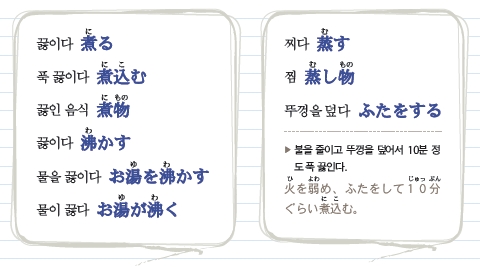 끓이다 煮る
푹 끓이다 煮込む
끓인 음식 煮物
끓이다 沸かす
물을 끓이다 お湯を沸かす
물이 끓다 お湯が沸く
찌다 蒸す
찜 蒸し物
뚜껑을 덮다 ふたをする
▶ 불을 줄이고 뚜껑을 덮어서 10분 정
도 푹 끓인다.
火を弱め、ふたをして１０分
ぐらい煮込む。